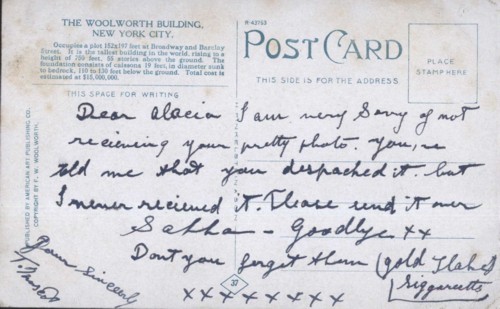 THE WOOLWORTH BUILDING,
NEW YORK CITY.
Occupies a plot 152x197 feet at Broadway and Barclay
Street. It is the tallest building in the world, rising to a
height of 750 feet, 55 stories above the ground. The
foundation consists of caissons 19 feet, in diameter sunk
to bedrock, 110 to 130 feet below the ground. Total cost is
estimated at $13,000,000.
R-43753
POST CARD
PLACE
STAMP HERE
THIS SPACE FOR WRITING
THIS SIDE IS FOR THE ADDRESS
PUBLISHED BY AMERICAN ART PUBLISHING CO.
COPYRIGHT BY F. W. WOOLWORTH.
Dear I am very Sorry of not
recieving your pretty photo. you,ve
told me that you despached it. but
I never recieved it. Please send it over
Goodbye xx
Dont you forget them (gold
Siggaretts
Your Sincerly
37
x x x x x x x x